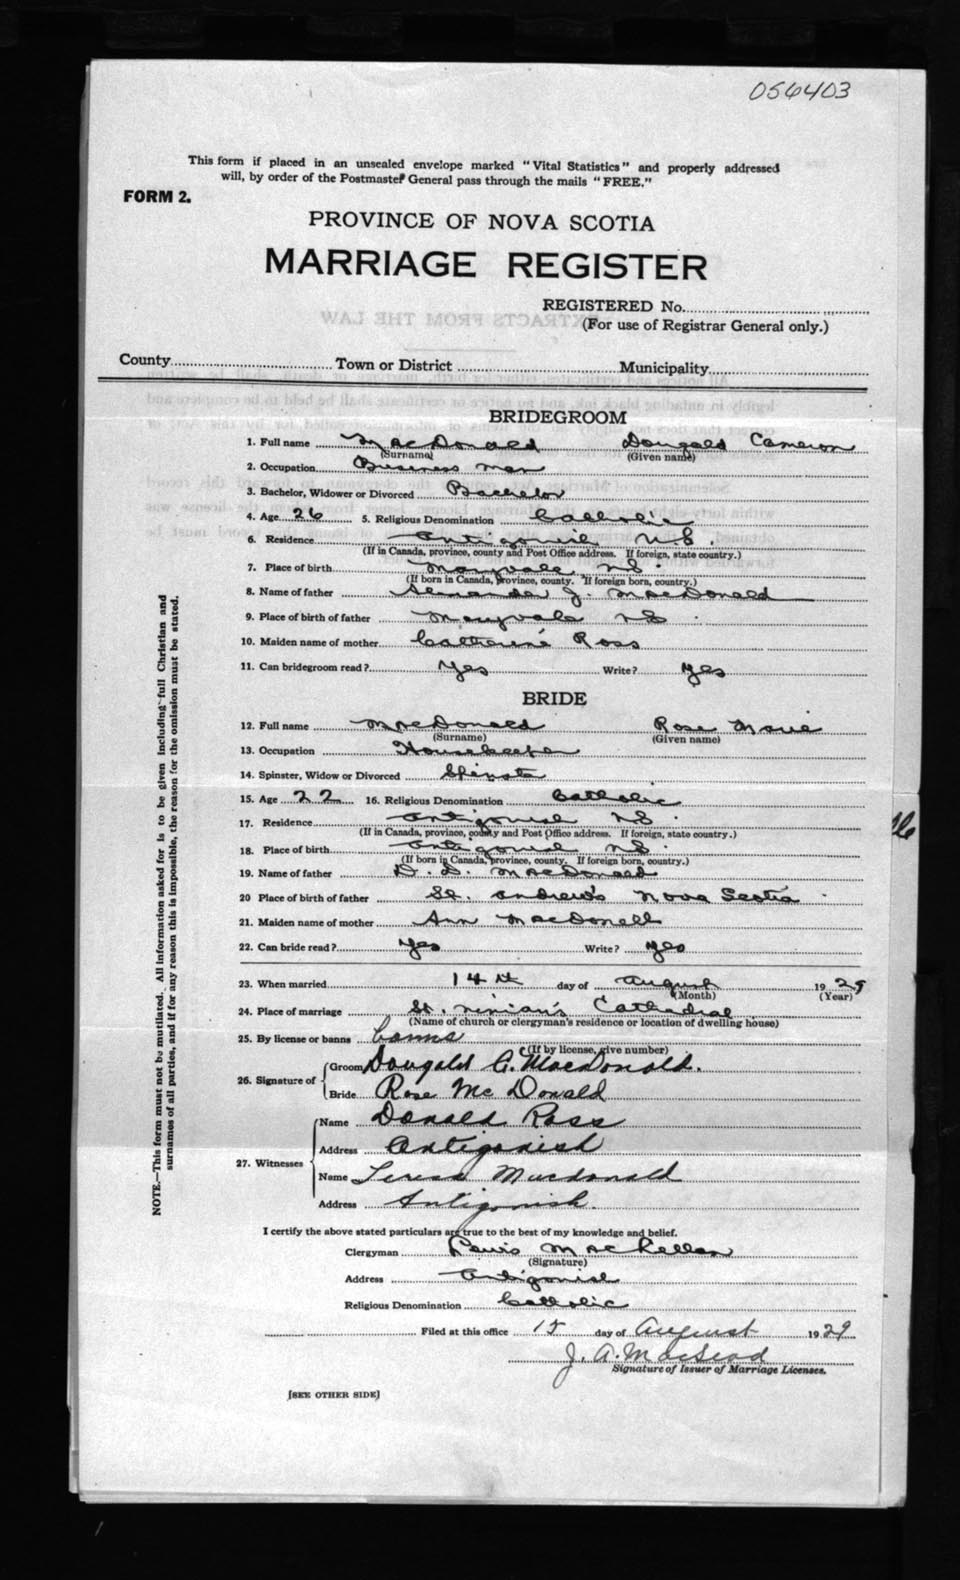 056403
This form if placed in an unsealed envelope marked "Vital Statistics" and properly addressed
will, by order of the Postmaster General pass through the mails "FREE."
FORM 2.
PROVINCE OF NOVA SCOTIA
MARRIAGE REGISTER
REGISTERED No.
(For use of Registrar General only.)
County Town or District Municipality
BRIDEGROOM
1. Full name MacDonald Dougald Cameron
(Surname) (Given name)
2. Occupation Business man
3. Bachelor, Widower or Divorced Bachelor
4. Age 26 5. Religious Denomination Catholic
6. Residence Antigonish N.S.
(If in Canada, province, county and Post Office address. If foreign, state country.)
7. Place of birth Maryvale NS.
(If born in Canada, province, county. If foreign born, country.)
8. Name of father Alexander J. MacDonald
9. Place of birth of father Maryvale NS
10. Maiden name of mother Catherine Ross
11. Can bridegroom read? Yes Write? yes
BRIDE
12. Full name MacDonald Rose Marie
(Surname) (Given name)
13. Occupation Housekeeper
14. Spinster, Widow or Divorced Spinster
15. Age 22 16. Religious Denomination Catholic
17. Residence Antigonish NS.
(If in Canada, province, county and Post Office address. If foreign, state country.)
18. Place of birth Antigonish NS.
(If born in Canada, province, county. If foreign born, country.)
19. Name of father D. D. MacDonald
20 Place of birth of father St. Andrew's Nova Scotia
21. Maiden name of mother Ann MacDonell
22. Can bride read? Yes Write? yes
23. When married 14th day of August 1929
(Month) (Year)
24. Place of marriage St. Ninian's Cathedral
(Name of church or clergyman's residence or location of dwelling house)
25. By license or banns banns
(If by license, give number)
26. Signature of Groom Dougald C. MacDonald.
Bride Rose McDonald
27. Witnesses Name Donald Ross
Address Antigonish
Name Teresa Macdonald
Address Antigonish.
I certify the above stated particulars are true to the best of my knowledge and belief.
Clergyman Lewis MacLellan
(Signature)
Address Antigonish
Religious Denomination Catholic
Filed at this office 15 day of August 1929
J. A. MacLeod
Signature of Issuer of Marriage Licenses.
[SEE OTHER SIDE]
NOTE.—This form must not be mutilated. All information asked for is to be given including full Christian and
surnames of all parties, and if for any reason this is impossible, the reason for the omission must be stated.